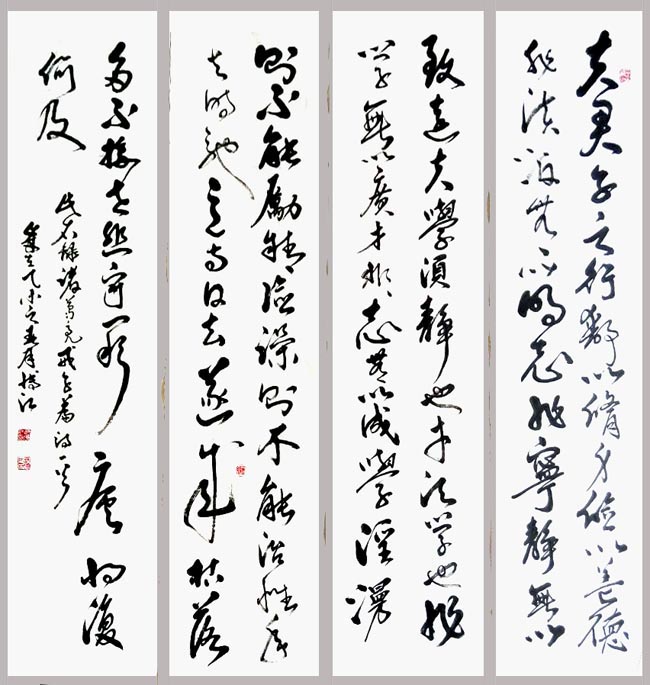 夫君子之行靜以脩身儉以養德
非淡泊無以明志非寧靜無以
致遠夫學須靜也才須學也非
學無以廣才非志無以成學淫漫
則不能勵精險躁則不能治性年
與時馳意與日去遂成枯落
多不接世悲守窮廬將復
何及
錄諸葛亮戒子篇